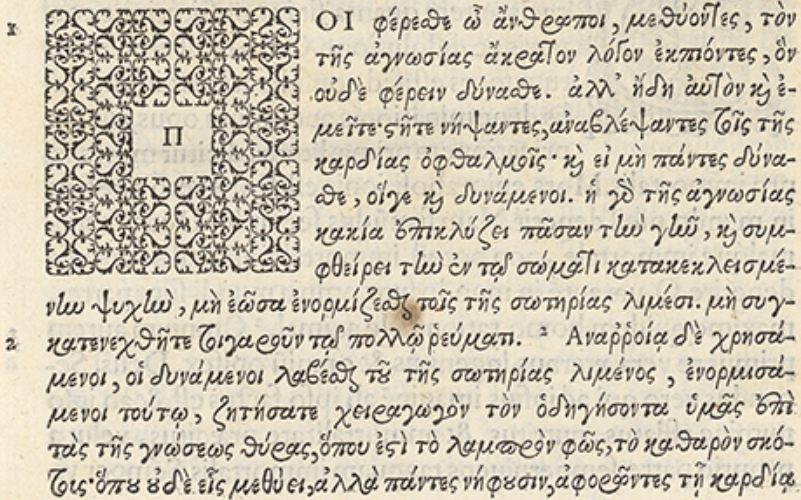 1 ΠΟΙ φέρεσθε ὦ ἄνθρωποι, μεθύοντες, τὸν
τῆς ἀγνωσίας ἄκρατον λόγον ἐκπιόντες, ὃν
οὐδὲ φέρειν δύνασθε. ἀλλ' ἤδη αὐτὸν καὶ ἐ-
μεῖτε· στῆτε νήψαντες, ἀναβλέψαντες τοῖς τῆς
καρδίας ὀφθαλμοῖς· καὶ εἰ μὴ πάντες δύνα-
σθε, οἵγε καὶ δυνάμενοι. ἡ γὸ τῆς ἀγνωσίας
κακία ἐπικλύζει πᾶσαν τὴν γῆν, καὶ συμ-
φθείρει τὴν ἐν τῷ σώματι κατακεκλεισμέ-
νην ψυχὴν, μὴ ἐῶσα ἐνορμίζεσθαι τοῖς τῆς σωτηρίας λιμέσι. μὴ συγ-
2 κατενεχθῆτε τοιγαροῦν τῷ πολλῷ ῥεύματι. 2 Αναῤῥοία δὲ χρησά-
μενοι, οἱ δυνάμενοι λαβέσθαι τοῦ τῆς σωτηρίας λιμένος, ἐνορμισά-
μενοι τούτῳ, ζητήσατε χειραγωγὸν τὸν ὁδηγήσοντα ὑμᾶς ἐπὶ
τὰς τῆς γνώσεως θύρας, ὅπου ἐστὶ τὸ λαμπρὸν φῶς, τὸ καθαρὸν σκό-
τοις· ὅπου οὐδὲ εἷς μεθύει, ἀλλὰ πάντες νήφουσιν, ἀφορῶντες τῇ καρδίᾳ